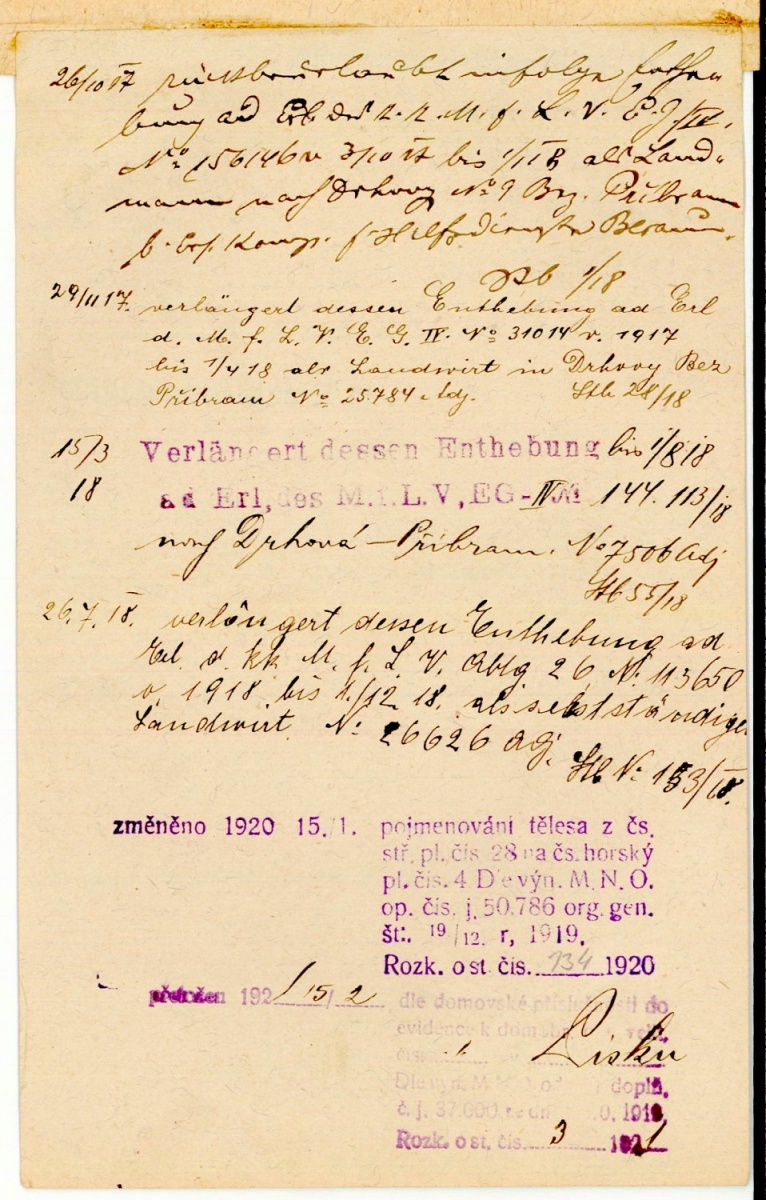 26/10 17 rückbeurlaubt infolge Enthe-
bung ad Erl. des k. k. M. f. L. V. E. G./IV.
No 156146 v 3/10 17 bis 1/1 18 als Land-
mann nach Drhovy No 9 Bez. Přibram
Komp. f Hilfsdienste Beraun.
Stb 1/18
29/11 17. verlängert dessen Enthebung ad Erl
d. M. f. L. V. E. G. IV. No 31014 v. 1917
bis 1/4 18 als Landwirt in Drhovy Bez
Přibram No 25.784 Adj. Stb 28/18
15/3 Verlängert dessen Enthebung bis 1/8 18
18 ad Erl, des M. f. L. V, EG-IV No 144. 113/18
nach Drhová - Přibram. No 7506 Adj
Stb 55/18
26.7.18. verlängert dessen Enthebung ad
Erl. d. kk M. f. L. V. Abtg 26 N: 113650
v. 1918 bis 1./12. 18. als selbstständiger
Landwirt N: 26626 Adj.
Stb N: 153/18.
změněno 1920 15./1. pojmenování tělesa z čs.
stř. pl. čís 28 na čs. horský
pl. čís. 4 Dle výn. M. N. O.
op. čís. j. 50.786 org. gen.
št:. 19/12. r, 1919.
Rozk. o st. čís. 134 1920
přeložen 1921 15/2 dle domovské příslušnosti do
evidence k
čís. Lisku
Dle výn. M. N. O. doplň.
č. j. 37.000 1919.
Rozk. o st. čís. 3 1921